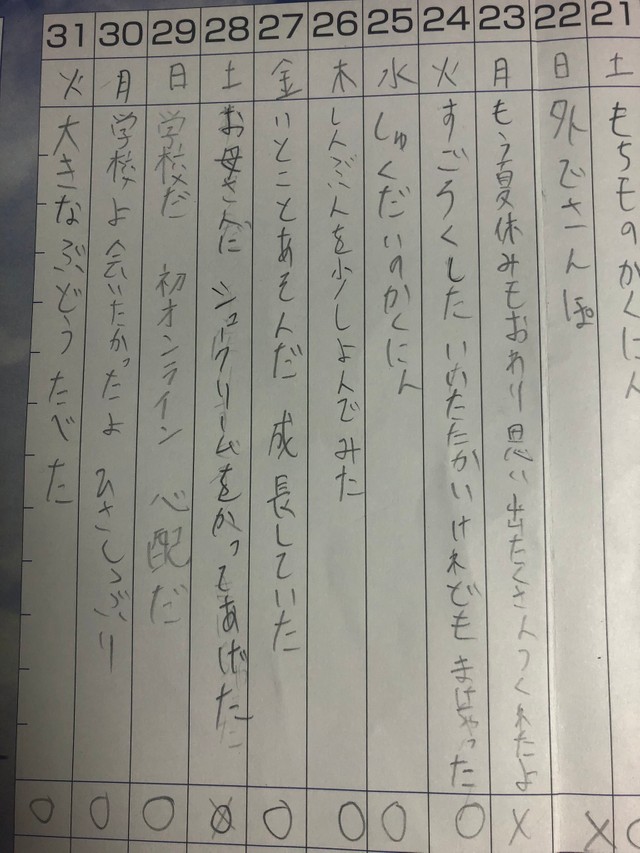 21
土
もちものかくにん
○
22
日
外でさんぽ
×
23
月
もう夏休みもおわり思い出たくさんつくれたよ
×
24
火
すごろくした いいたたかいけれども まけちゃった
○
25
水
しゅくだいのかくにん
○
26
木
しんぶんを少しよんでみた
○
27
金
いとことあそんだ 成長していた
○
28
土
お母さんに シュークリームをかってあげた
29
日
学校だ 初オンライン 心配だ
○
30
月
学校よ会いたかったよ ひさしっぶり
○
31
火
大きなぶどうたべた
○